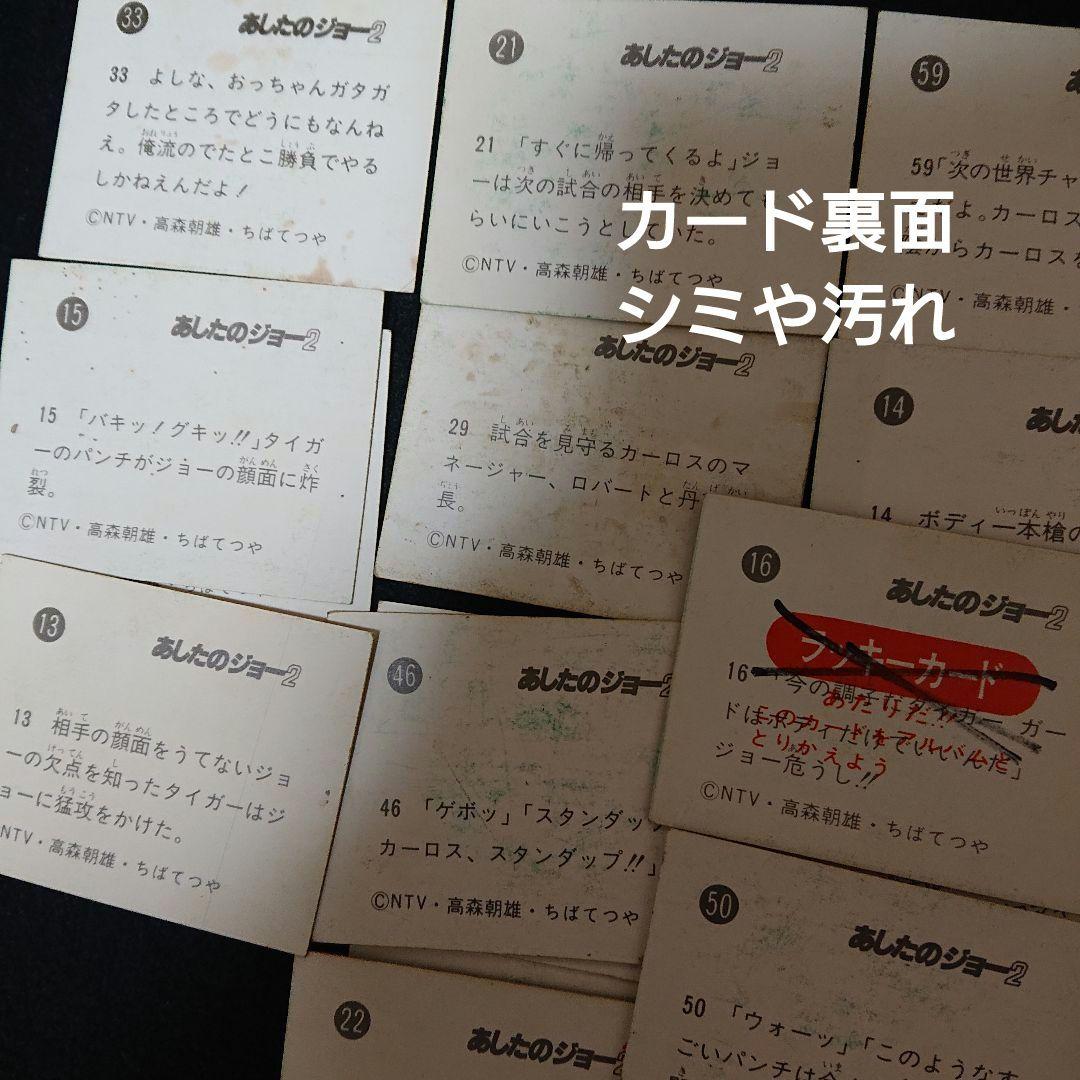 33
あしたのジョー2
33 よしな、おっちゃんガタガ
タしたところでどうにもなんね
え。俺流のでたとこ勝負でやる
しかねえんだよ!
©NTV・高森朝雄・ちばてつや
21
あしたのジョー2
21 「すぐに帰ってくるよ」ジョ
ーは次の試合の相手を決めても
らいにいこうとしていた。
©NTV・高森朝雄・ちばてつや
59
あ
59「次の世界チャ
だよ。カーロス
からカーロスを
NTV・高森朝雄・
カード裏面
シミや汚れ
15
あしたのジョー2
15 「バキッ!グキッ!!」タイガ
ーのパンチがジョーの顔面に炸
裂。
©NTV・高森朝雄・ちばてつや
あしたのジョー2
29 試合を見守るカーロスのマ
ネージャー、ロバートと丹
長。
©NTV・高森朝雄・ちばてつや
14
あした
14 ボディー本槍の
13
あしたのジョー2
13 相手の顔面をうてないジョ
ーの欠点を知ったタイガーはジ
ョーに猛攻をかけた。
NTV・高森朝雄・ちばてつや
46
あしたのジョー2
46 「ゲボッ」「スタンダッ
カーロス、スタンダップ!!」
©NTV・高森朝雄・ちばてつや
16
あしたのジョー2
ラッキーカード
16 「今の調子だタイガー ガー
ドはボディだけでいいんだ」
ジョー危うし!!
あたりだ!!
このカードをアルバムと
とりかえよう
©NTV・高森朝雄・ちばてつや
22
あしたのジョー2
50
あしたのジョー2
50 「ウォーッ」「このようなす
ごいパンチは今